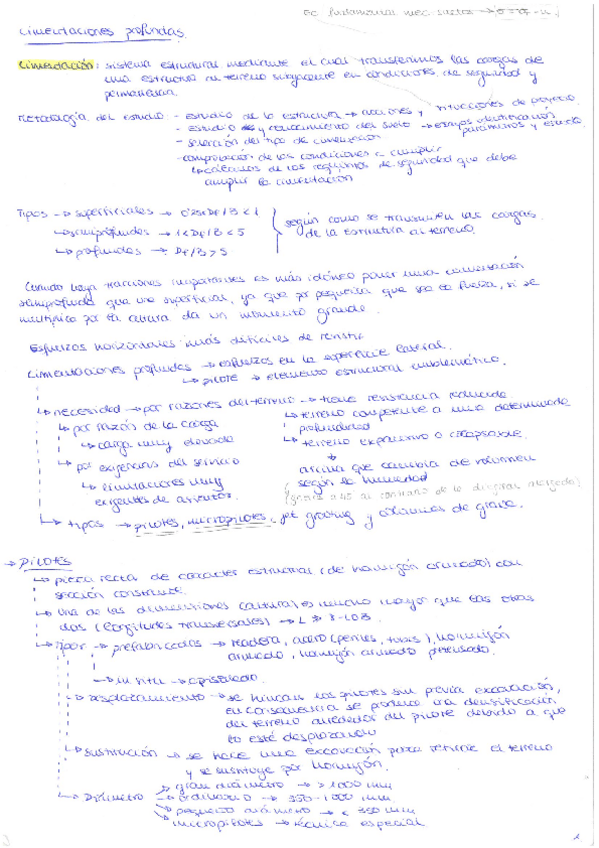 Ec fundamental mec. suelos →
Cimentaciones profundas.
Cimentación: sistema estructural mediante el cual transferimos las cargas de
una estructura al terreno subyacente en condiciones de seguridad y
permanencia.
Metodología del estudio - estudio de la estructura → acciones y situaciones de proyecto
- estudio y conocimiento del suelo → ensayos identificación
parámetros y estado
- selección del tipo de cimentación
- comprobación de las condiciones a cumplir
↳ cálculos de los requisitos de seguridad que debe
cumplir la cimentación
Tipos → superficiales → 0'25<Df/B<1
↳ semiprofundos → 1<Df/B<5
↳ profundos → Df/B>5
según como se transmiten las cargas
de la estructura al terreno.
Cuando haya tracciones importantes es más idóneo poner una cimentación
semiprofunda que una superficial, ya que por pequeña que sea la fuerza, si se
multiplica por la altura da un momento grande.
Esfuerzos horizontales más difíciles de resistir
Cimentaciones profundas → esfuerzos en la superficie lateral.
↳ pilote → elemento estructural emblemático.
↳ necesidad → por razones del terreno → tiene resistencia reducida
↳ terreno competente a una determinada
profundidad
↳ terreno expansivo o colapsable.
arcilla que cambia de volumen
según la humedad
↳ por razón de la carga
↳ carga muy elevada
↳ por exigencias del servicio
↳ limitaciones muy
exigentes de asientos.
↳ tipos → pilotes, micropilotes, jet grouting y columnas de grava.
→ Pilotes
↳ pieza recta de carácter estructural (de hormigón armado) con
sección constante.
↳ una de las dimensiones (altura) es mucho mayor que las otras
dos (longitudes transversales) →
↳ tipos → prefabricados → madera, acero (perfiles, tubos), hormigón
armado, hormigón armado pretensado.
↳ in situ → apisonado.
↳ desplazamiento → se hincan los pilotes sin previa excavación,
en consecuencia se produce una densificación
del terreno alrededor del pilote debido a que
lo esté desplazando
↳ sustitución → se hace una excavación para retirar el terreno
y se sustituye por hormigón.
↳ Diámetro → gran diámetro → > 1000 mm
→ ordinario → 350-1000 mm
→ pequeño diámetro → < 350 mm
→ micropilotes → técnica especial